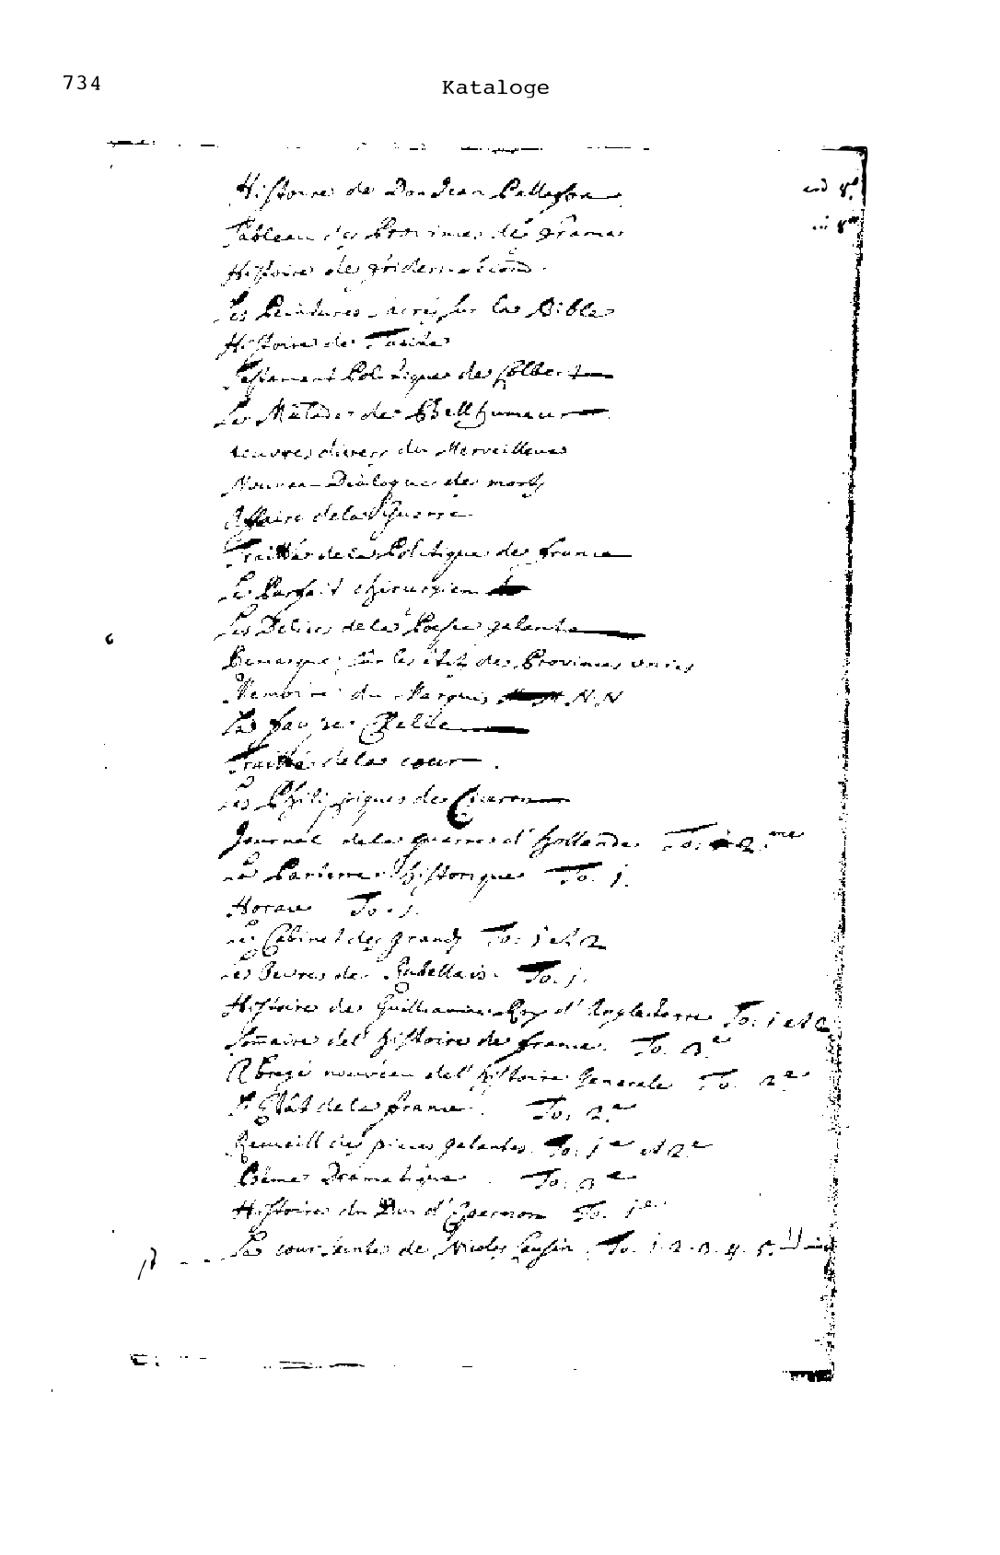 734
Kataloge
Histoire de Don Jean
Tableau des Provinces de france
Histoire de
Les Peintures sur la Bible
Histoire de Tacite
Testament Politique de Colbert
Le Malade de Belle humeur
Oeuvres divers du
Nouveau Dialogue des morts
Affaire de la Guerre
Traitté de la Politique de france
Le Parfait chirurgien
Les Delices de la Poesie galante
Remarque sur les états des Provinces unies
Memoire du Marquis N.N
La fausse Clelie
Traitté de la cour.
Les Philippiques de Ciceron
Journal de la guerre d'hollande To. 2.me
historique To. 1.
Horace To. 1.
Le Cabinet des grands To: 1 et 2
Les Oeuvres de Rabellais. To. 1.
Histoire de Guilliaume Roy d'Angleterre To: 1 et 2
Sommaire del'histoire de france. To. 3e
Abregé nouveau del'histoire Generale To. 2e
L'Etat de la france. To: 2e
Recueill des pieces galantes. To: 1e et 2e
Poëme Dramatique To: 3e
Histoire du Duc d'Epernon To. 1er
La cour sainte de Nicolas Caussin. To. 1. 2. 3. 4. 5.